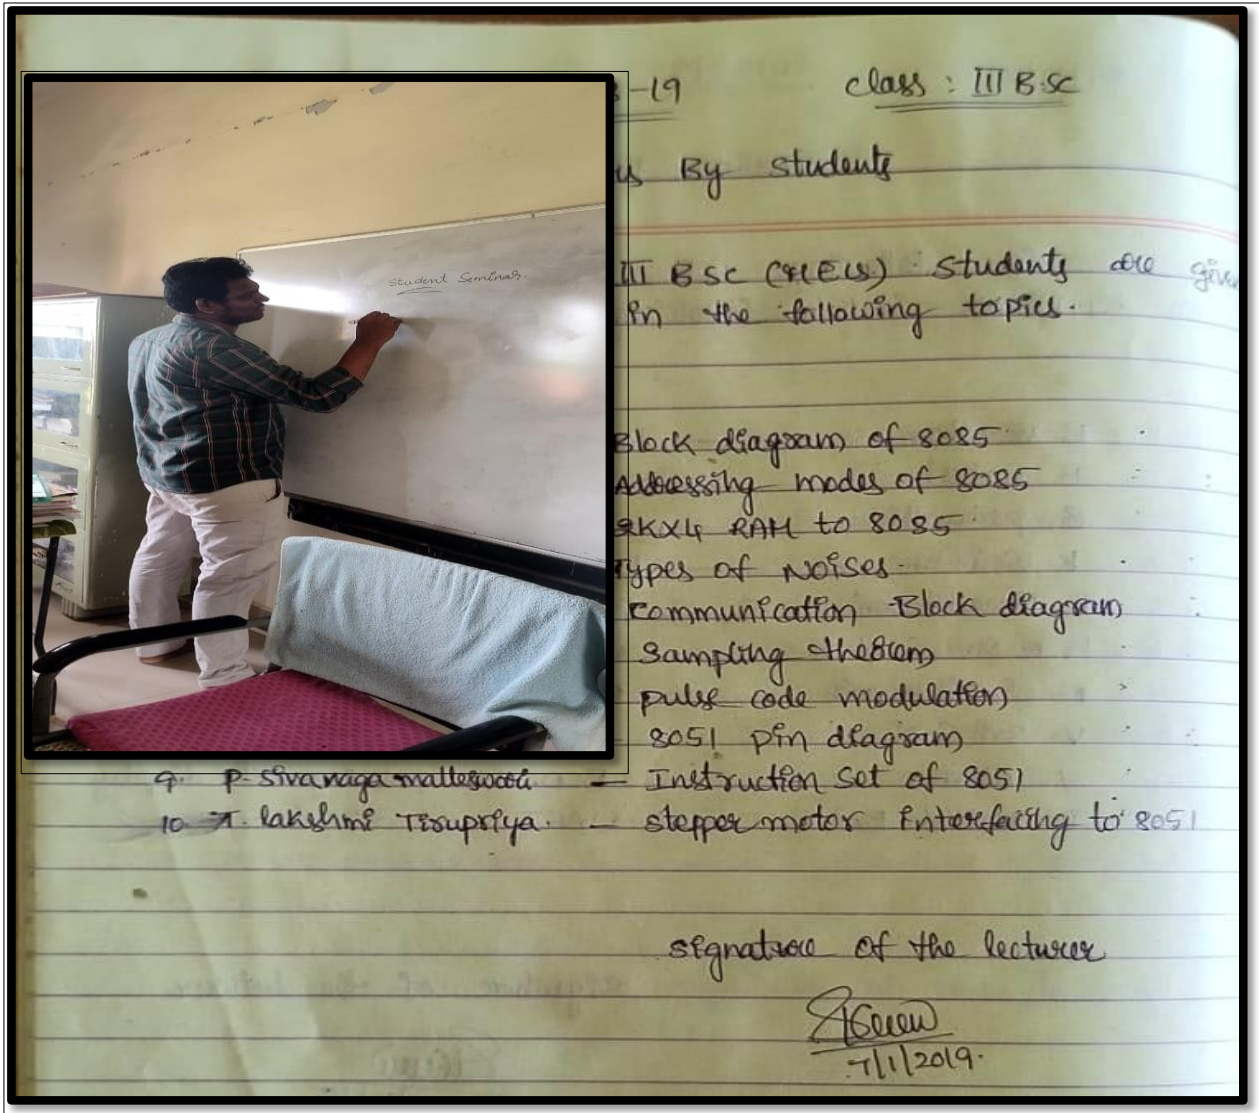 -19 class : III B.sc
By students
III B Sc (MECs) students are given
in the following topics.
Student Seminar.
Block diagram of 8085
Addressing modes of 8085
KX4 RAM to 8085
Types of Noises.
communication Block diagram
Sampling theorem
pulse code modulation
8051 pin diagram
9. P. Sivanaga malleswari — Instruction Set of 8051
10 T. lakshmi Tirupriya. — stepper motor interfacing to 8051
signature of the lecturer
7/1/2019.